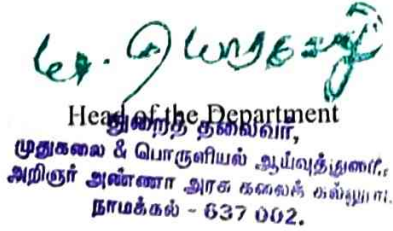 Head of the Department
துறைத் தலைவர்,
முதுகலை & பொருளியல் ஆய்வுத்துறை,
அறிஞர் அண்ணா அரசு கலைக் கல்லூரி,
நாமக்கல் - 637 002.